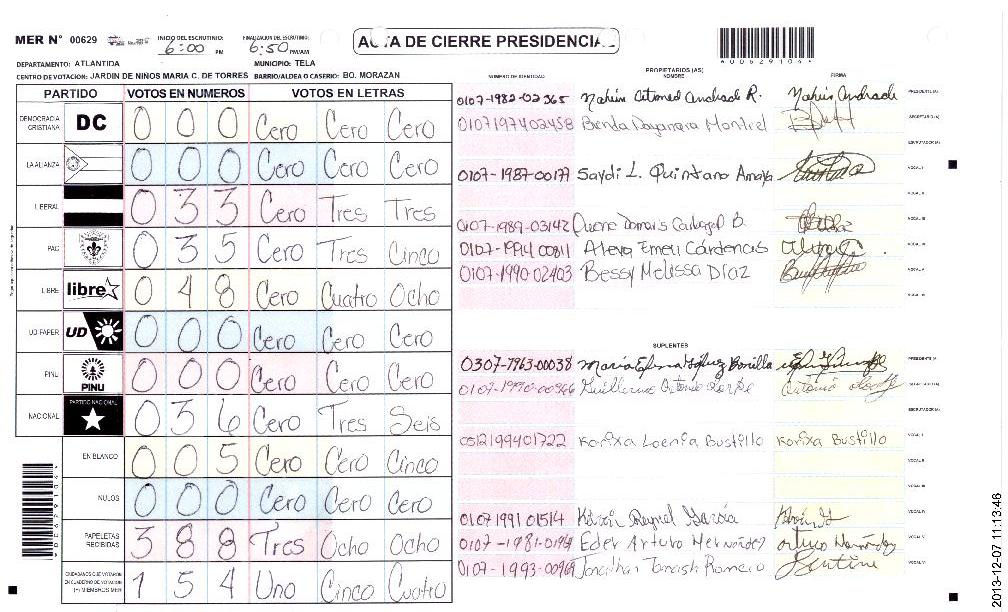 MER N° 00629 INICIO DEL ESCRUTINIO: 6:00 PM FINALIZACION DEL ESCRUTINIO: 6:50 PM/AM ACTA DE CIERRE PRESIDENCIAL
DEPARTAMENTO: ATLANTIDA MUNICIPIO: TELA
CENTRO DE VOTACION: JARDIN DE NIÑOS MARIA C. DE TORRES BARRIO/ALDEA O CASERIO: BO. MORAZAN
PARTIDO VOTOS EN NUMEROS VOTOS EN LETRAS
DEMOCRACIA CRISTIANA DC 0 0 0 Cero Cero Cero
LA ALIANZA 0 0 0 Cero Cero Cero
LIBERAL 0 3 3 Cero Tres Tres
PAC 0 3 5 Cero Tres Cinco
LIBRE libre 0 4 8 Cero Cuatro Ocho
UD-FAPER UD 0 0 0 Cero Cero Cero
PINU PINU 0 0 0 Cero Cero Cero
NACIONAL PARTIDO NACIONAL 0 3 6 Cero Tres Seis
EN BLANCO 0 0 5 Cero Cero Cinco
NULOS 0 0 0 Cero Cero Cero
PAPELETAS RECIBIDAS 3 8 8 Tres Ocho Ocho
CIUDADANOS QUE VOTARON EN CUADERNO DE VOTACION (+) MIEMBROS MER 1 5 4 Uno Cinco Cuatro
PROPIETARIOS (AS)
NUMERO DE IDENTIDAD NOMBRE FIRMA
0107-1982-02365 Andrade R. Andrade PRESIDENTE (A)
0107197402458 Montiel SECRETARIO (A)
ESCRUTADOR (A)
0107-1987-00177 Saydi L. Quintano Amaya VOCAL I
VOCAL II
0107-1989-03142 VOCAL III
0107-1994 00811 Emeli Cárdenas VOCAL IV
0107-1990-02403 Bessy Melissa Díaz VOCAL V
VOCAL VI
SUPLENTES
0307-1963-00038 María Bonilla PRESIDENTE (A)
Guillermo Antonio SECRETARIO (A)
ESCRUTADOR (A)
0512199401722 Karixa Loenia Bustillo Karixa Bustillo VOCAL I
VOCAL II
VOCAL III
0107 1991 01514 Kevin García VOCAL IV
Eder Arturo Hernández Arturo Hernández VOCAL V
0107-1993-00969 Jonathan Romero VOCAL VI
2013-12-07 11:13:46